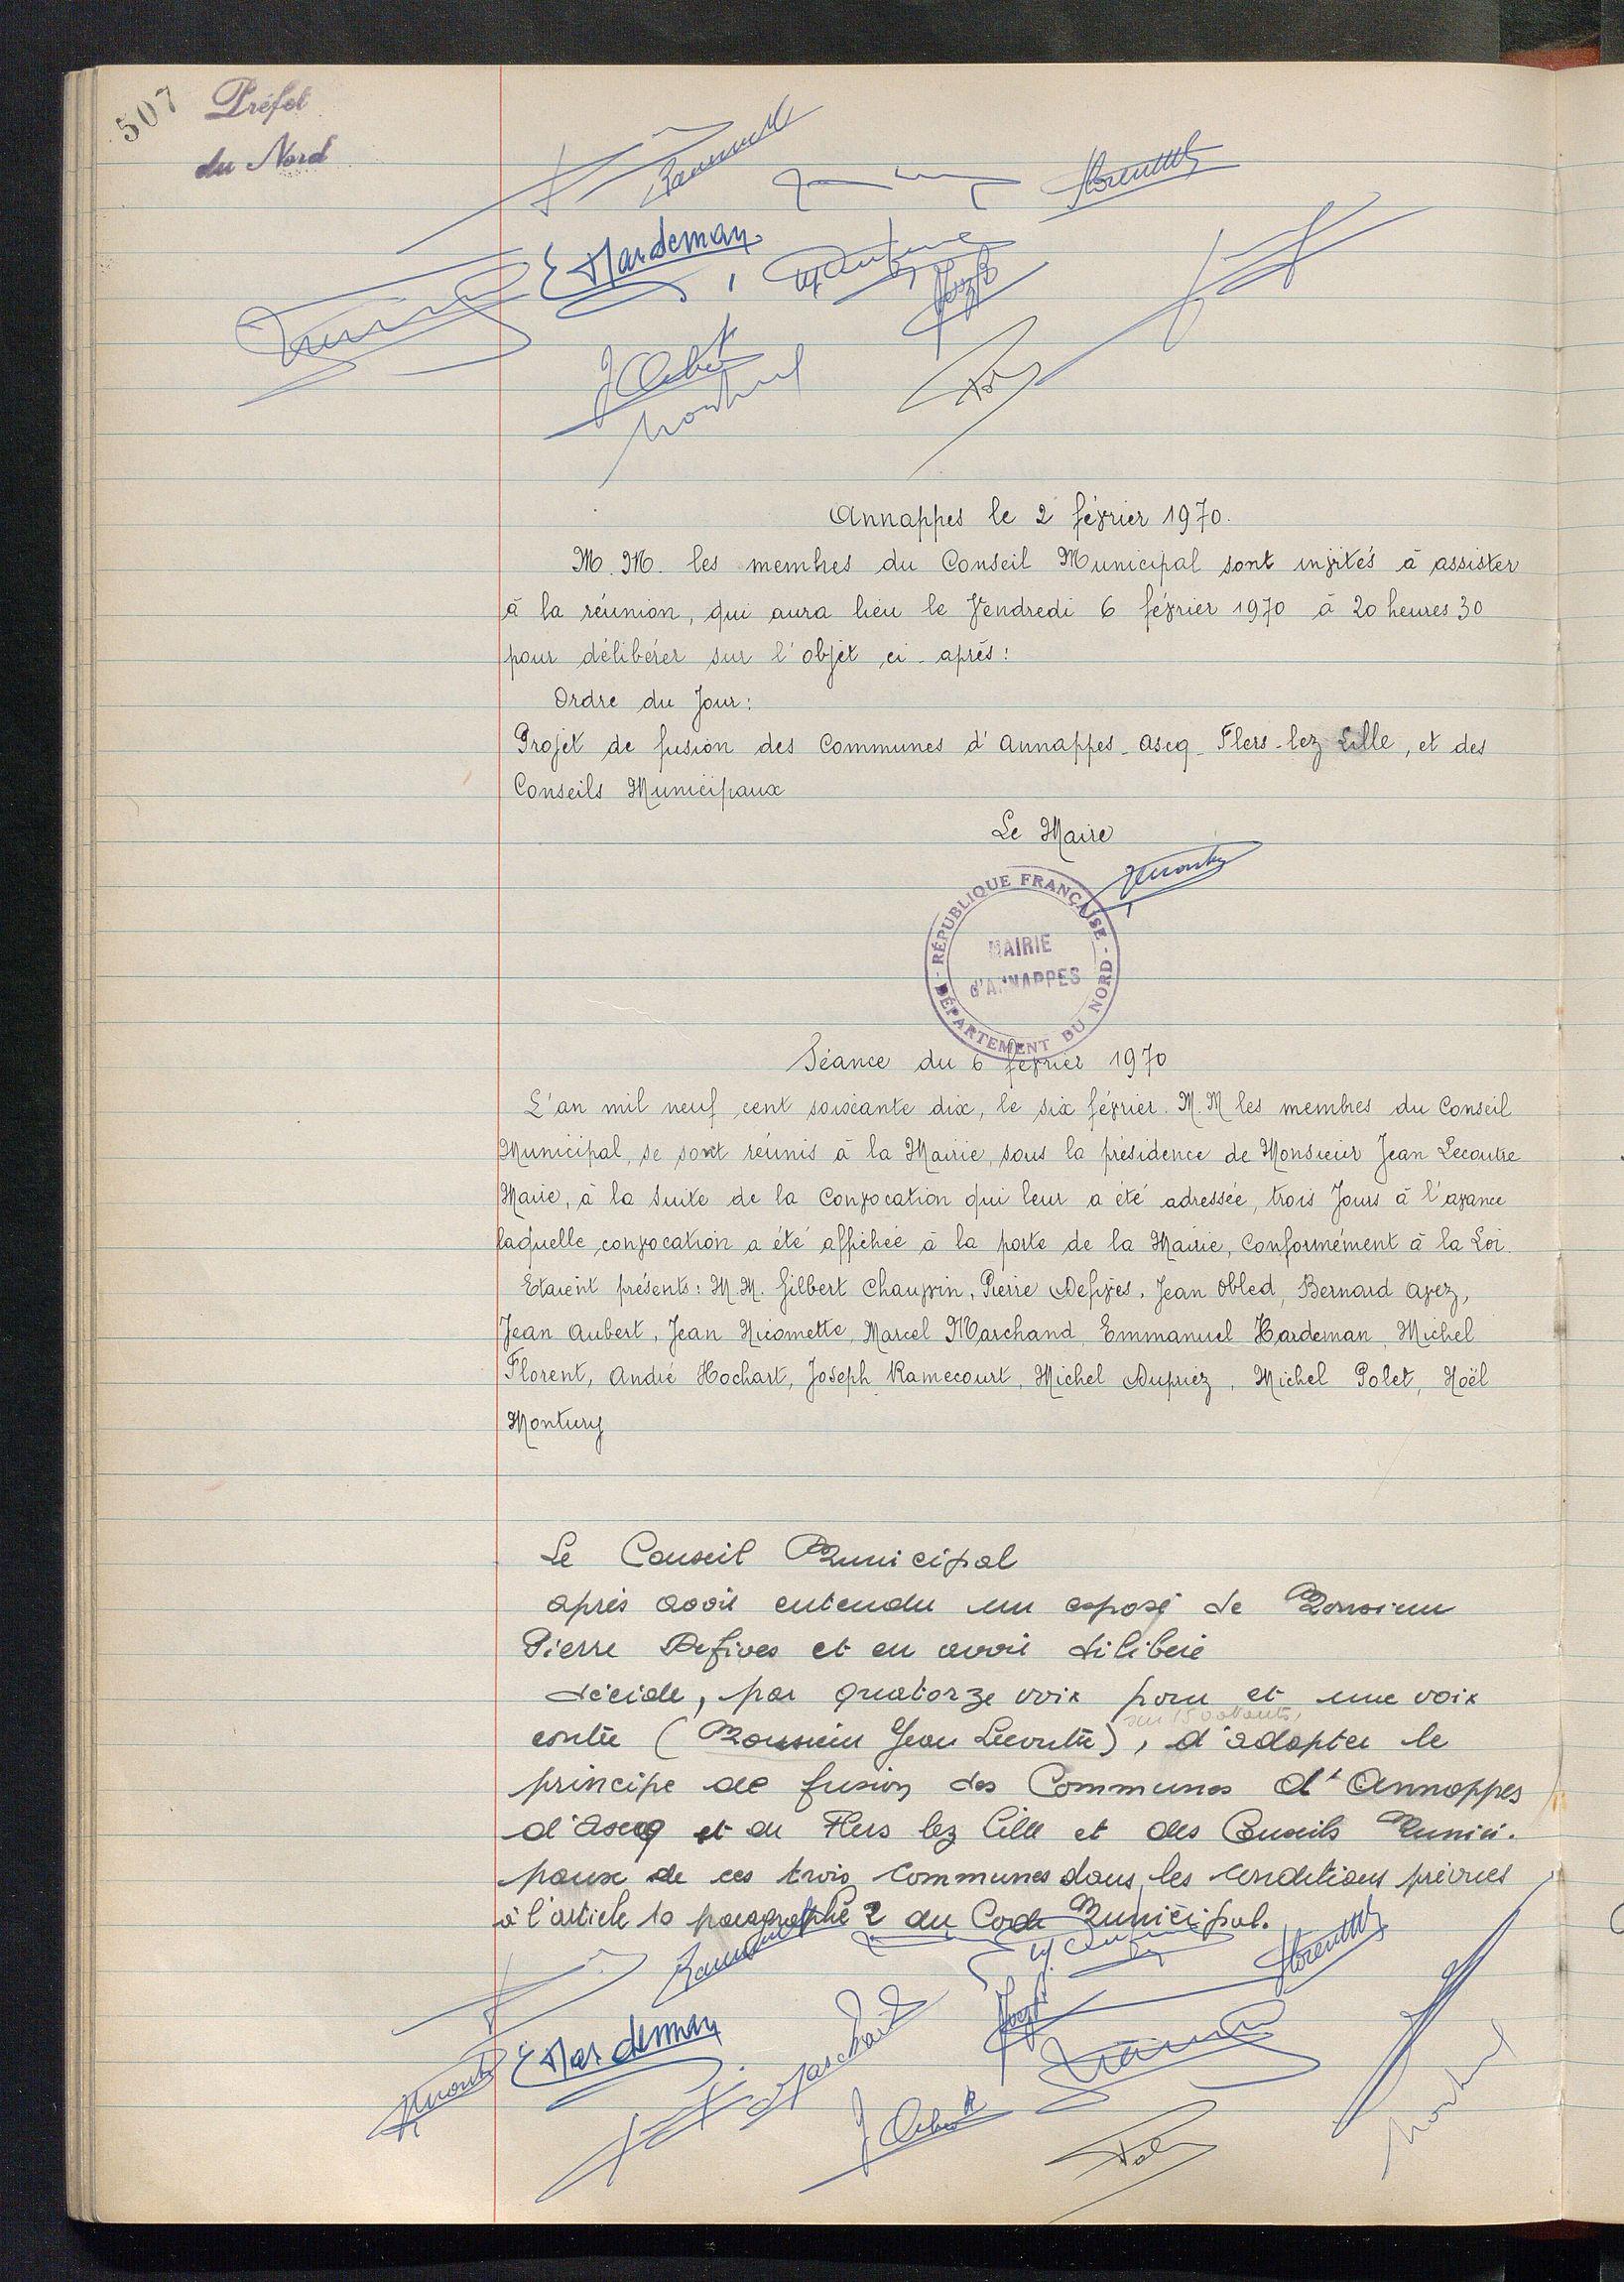 507
Préfet
du Nord
Hardeman
Annappes le 2 février 1970.
M. M. les membres du Conseil Municipal sont invités à assister
à la réunion, qui aura lieu le Vendredi 6 février 1970 à 20 heures 30
pour délibérer sur l'objet ci-après :
Ordre du Jour :
Projet de fusion des Communes d'Annappes - Ascq - Flers-lez Lille, et des
Conseils Municipaux
Le Maire
RÉPUBLIQUE FRANÇAISE
MAIRIE
d'ANNAPPES
DÉPARTEMENT DU NORD
Séance du 6 février 1970
L'an mil neuf cent soixante dix, le six février. M. M les membres du Conseil
Municipal, se sont réunis à la Mairie, sous la présidence de Monsieur Jean Lecoutre
Maire, à la Suite de la Convocation qui leur a été adressée, trois Jours à l'avance
laquelle convocation a été affichée à la porte de la Mairie, Conformément à la Loi.
Etaient présents : M. M. Gilbert Chauvin, Pierre Defives, Jean Obled, Bernard Avez,
Jean Aubert, Jean Nicomette, Marcel Marchand, Emmanuel Hardeman, Michel
Florent, André Hochart, Joseph Ramecourt, Michel Dupriez, Michel Polet, Noël
Montury
Le Conseil Municipal
après avoir entendu un exposé de Monsieur
Pierre Defives et en avoir délibéré
décide, par quatorze voix pour et une voix
sur 15 votants,
contre (Monsieur Jean Lecoutre), d'adopter le
principe de fusion des Communes d'Annappes
d'Ascq et de Flers lez Lille et des Conseils Munici-
paux de ces trois communes dans les conditions prévues
à l'article 10 paragraphe 2 du Code Municipal.
Hardeman